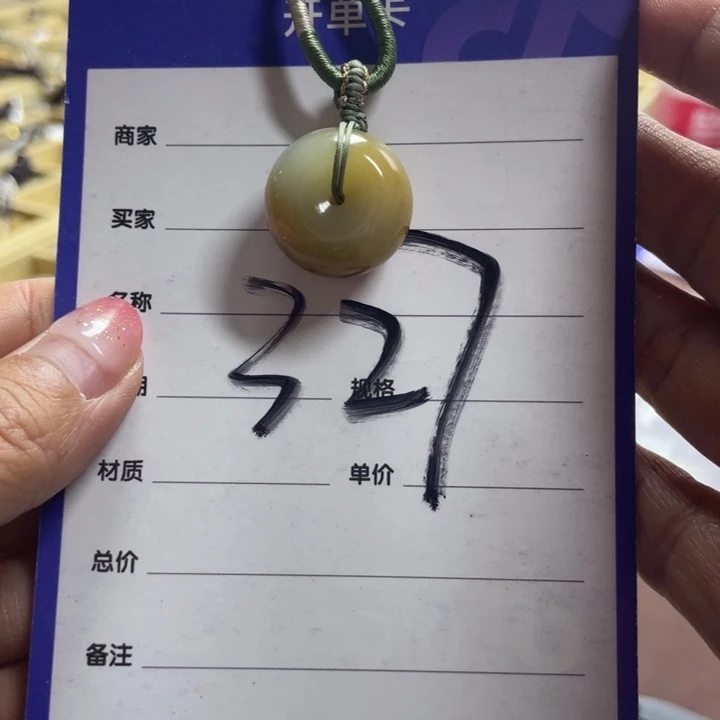 开单卡
商家
买家
名称
327
期 规格
材质 单价
总价
备注